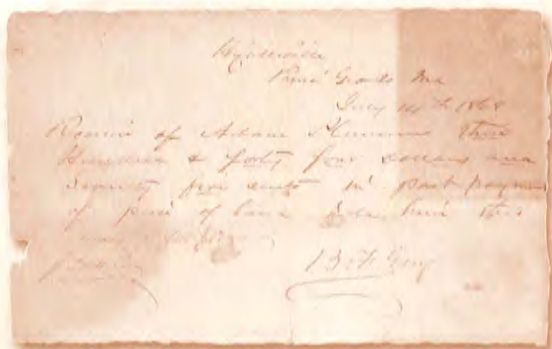 Hyattsville
Prince Georges Md
July 14th 1868
Received of Adam Plummer three
Hundred & forty four dollars and
Seventy five cents in part payment
of piece of land sold him this
day
B F Guy